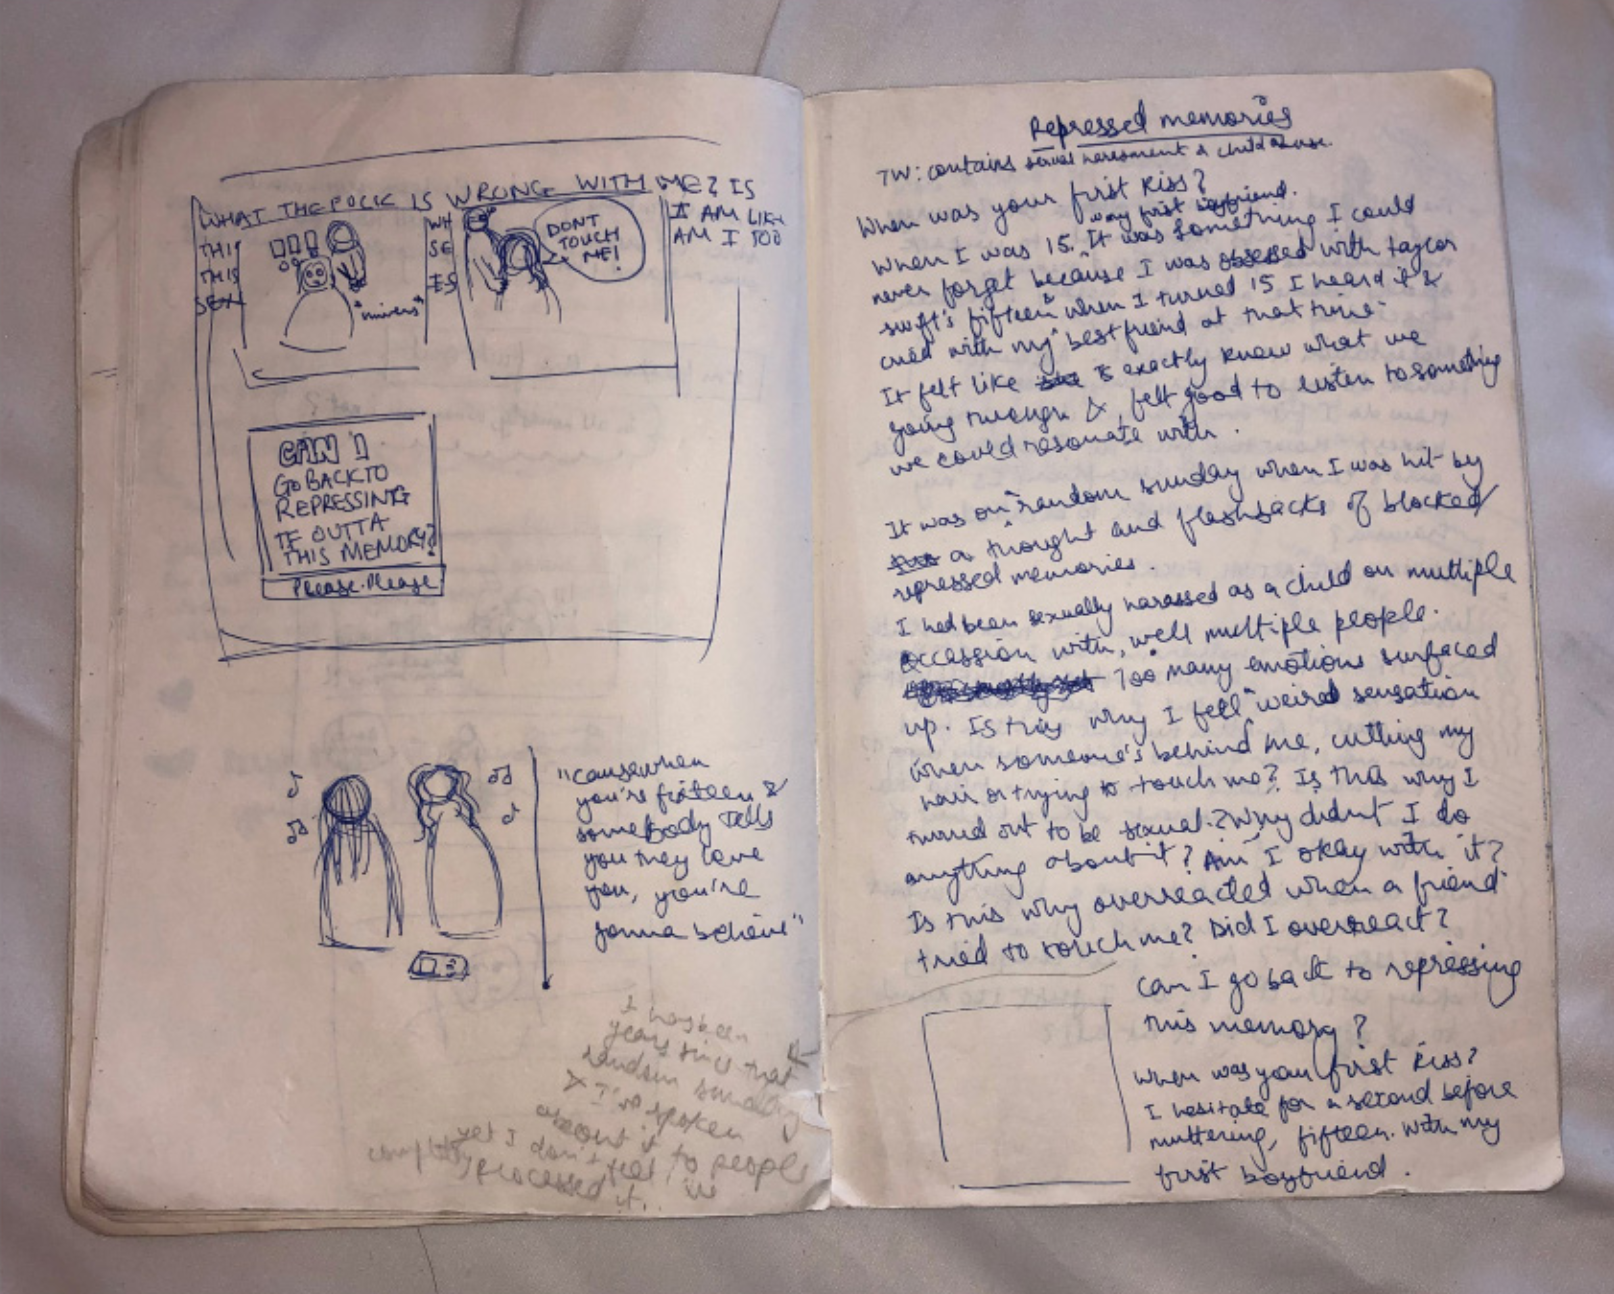 WHAT THE FUCK IS WRONG WITH ME? IS
THIS
THIS
SEX
"mirrors"
WH
SE
IS
DON'T
TOUCH
ME!
I AM LIKE
AM I TOO
CAN I
GO BACK TO
REPRESSING
TF OUTTA
THIS MEMORY?
Please. Please
"cause when
you're fifteen &
somebody tells
you they love
you, you're
gonna believe"
years since that
random sunday
& I've spoken
about it to people
yet I don't feel, I've
completely processed it..
Repressed memories
TW: contains sexual harassment & child abuse.
When was your first kiss?
When I was 15. my first boyfriend. It was something I could
never forget because I was obsessed with taylor
swift's "fifteen" when I turned 15 I heard it &
cried with my best friend at that time.
It felt like is exactly knew what we
going through & felt good to listen to something
we could resonate with.
It was on random sunday when I was hit by
a thought and flashbacks of blocked/
repressed memories.
I had been sexually harassed as a child on multiple
occassion with, well multiple people.
Too many emotions surfaced
up. Is this why I feel weird sensation
when someone's behind me, cutting my
hair or trying to touch me? Is this why I
turned out to be sexual? Why didn't I do
anything about it? Am I okay with it?
Is this why overreacted when a friend
tried to touch me? Did I overreact?
can I go back to repressing
this memory?
When was your first kiss?
I hesitate for a second before
muttering, fifteen. With my
first boyfriend.